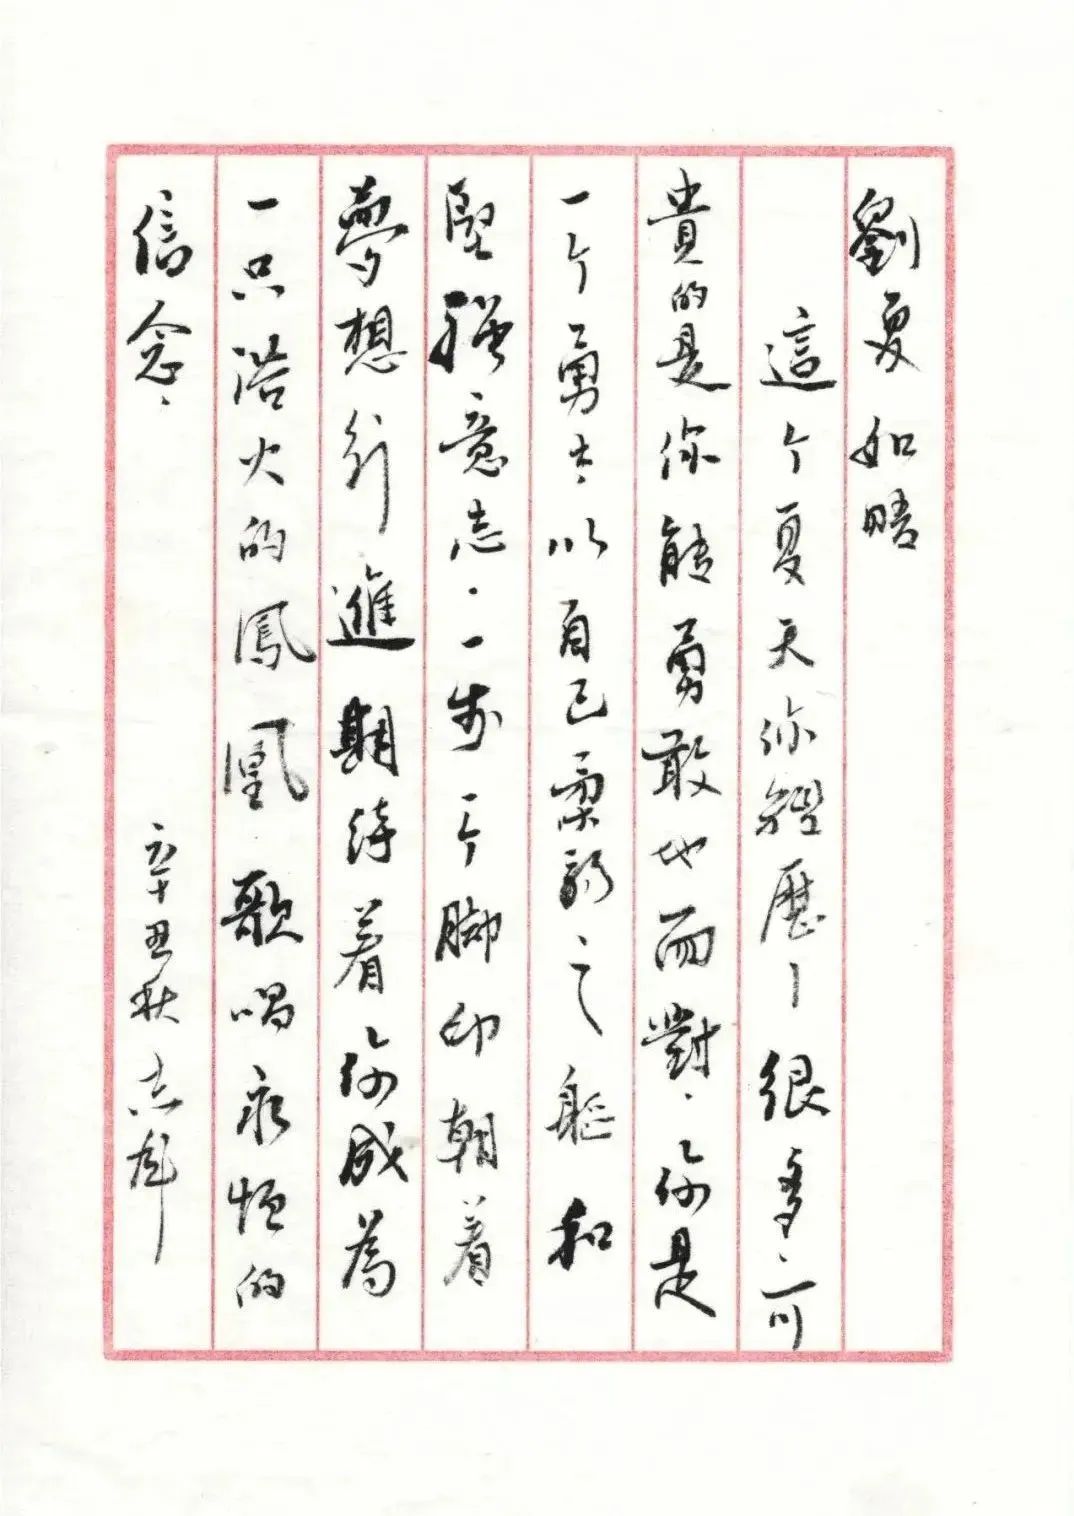 劉夏如晤
這个夏天你經歷了很多、可
貴的是你能勇敢地面對、你是
一个勇士、以自己柔弱之軀和
堅强意志、一步一个脚印朝着
夢想行進期待着你成為
一只浴火的鳳凰、歌唱永恒的
信念、
辛丑秋志